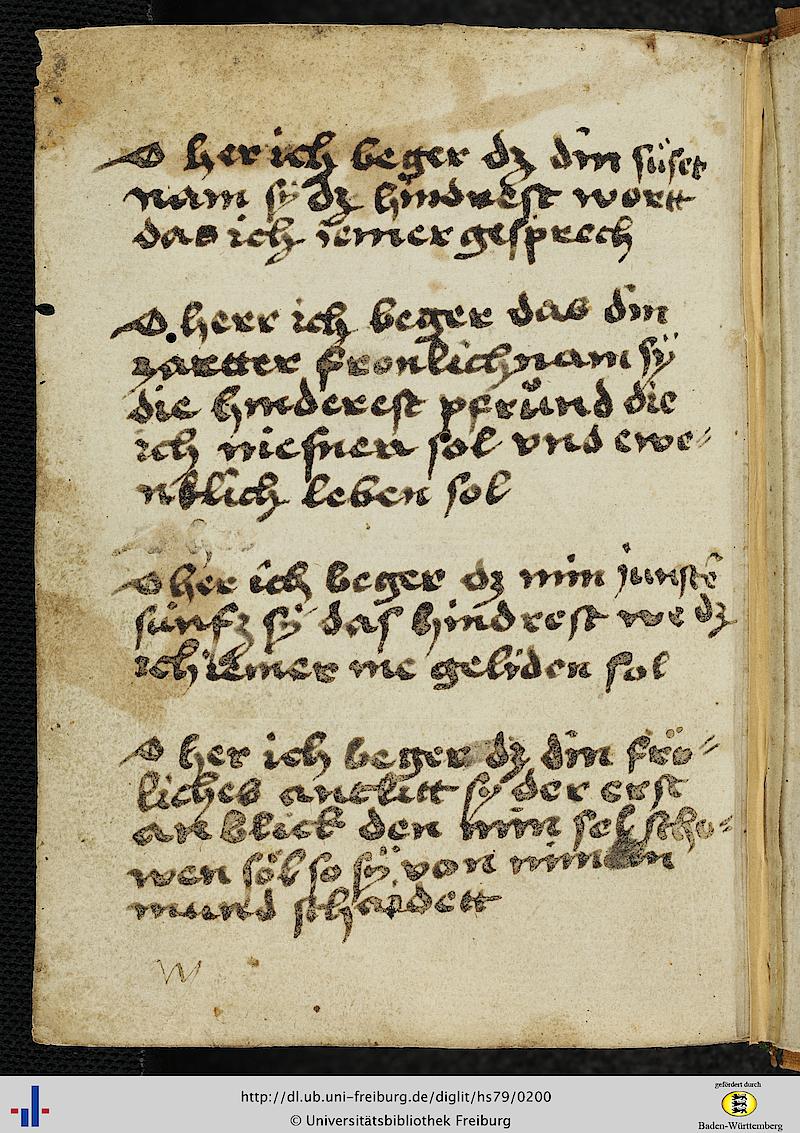 O her ich beger dz din süser
nam sÿ dz hindrest wortt
das ich iemer gesprech
O herr ich beger das din
zartter fronlichnam sÿ
die hinderest pfrůnd die
ich niesnen sol vnd ewe-
nklich leben sol
O her
O her ich beger dz min junste
sünfz sÿ das hindrest we dz
ich iemer me geliden sol
O her ich beger dz din frö-
liches antlitt sÿ der erst
an blick den min sel scho-
wen söl so sÿ von minem
mund schaidett
W
http://dl.ub.uni-freiburg.de/diglit/hs79/0200
© Universitätsbibliothek Freiburg
gefördert durch
Baden-Württemberg